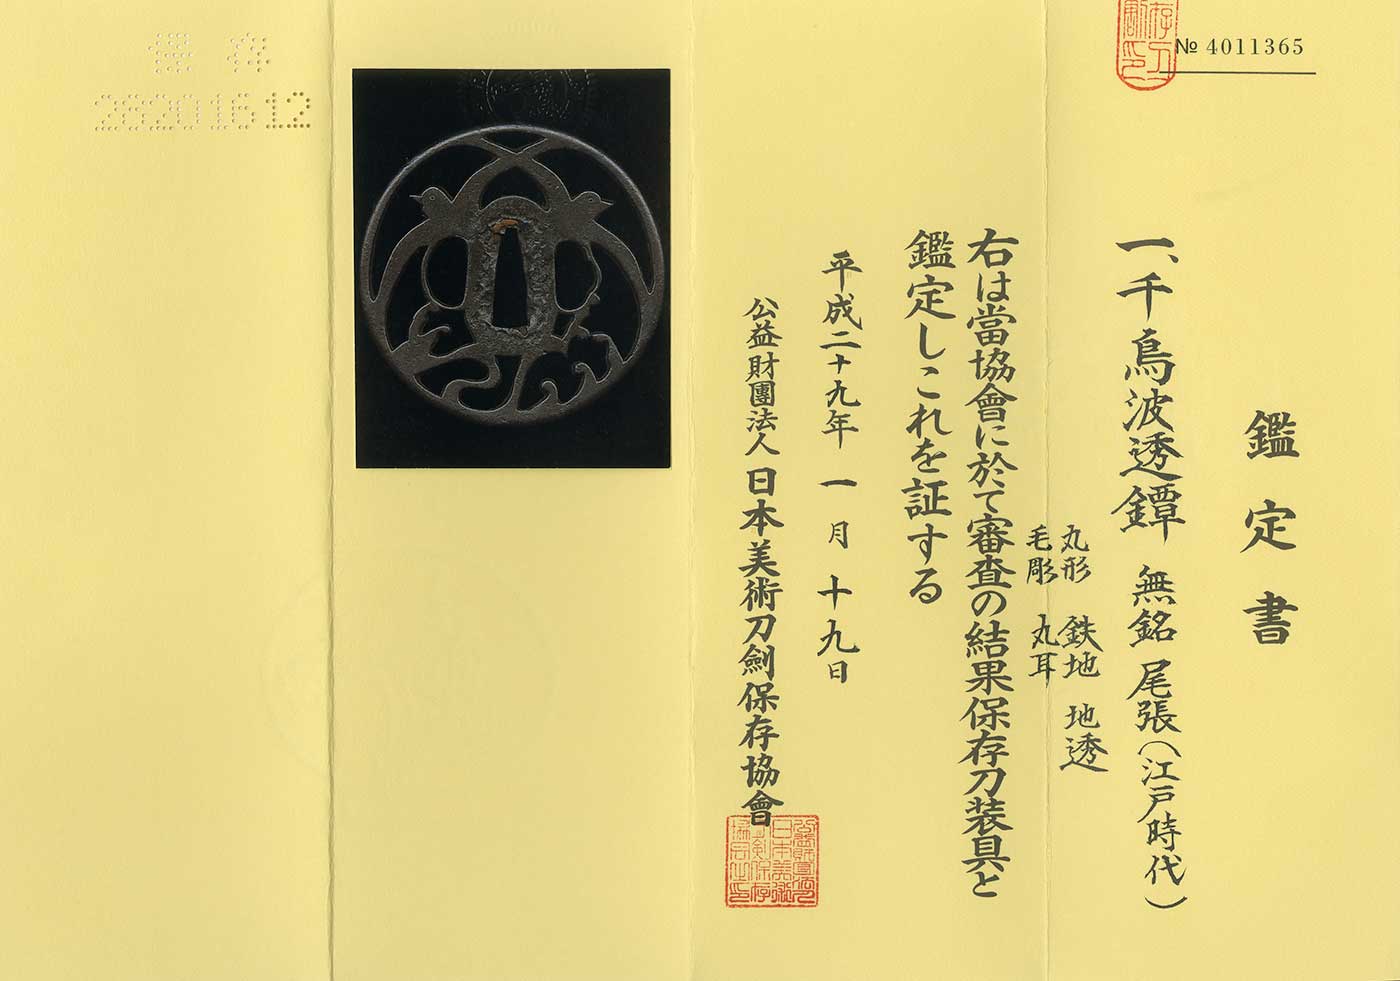 № 4011365
鑑定書
一、千鳥波透鐔 無銘 尾張(江戸時代)
丸形 鉄地 地透
毛彫 丸耳
右は當協會に於て審査の結果保存刀装具と
鑑定しこれを証する
平成二十九年 一月 十九日
公益財團法人 日本美術刀劍保存協會
保存